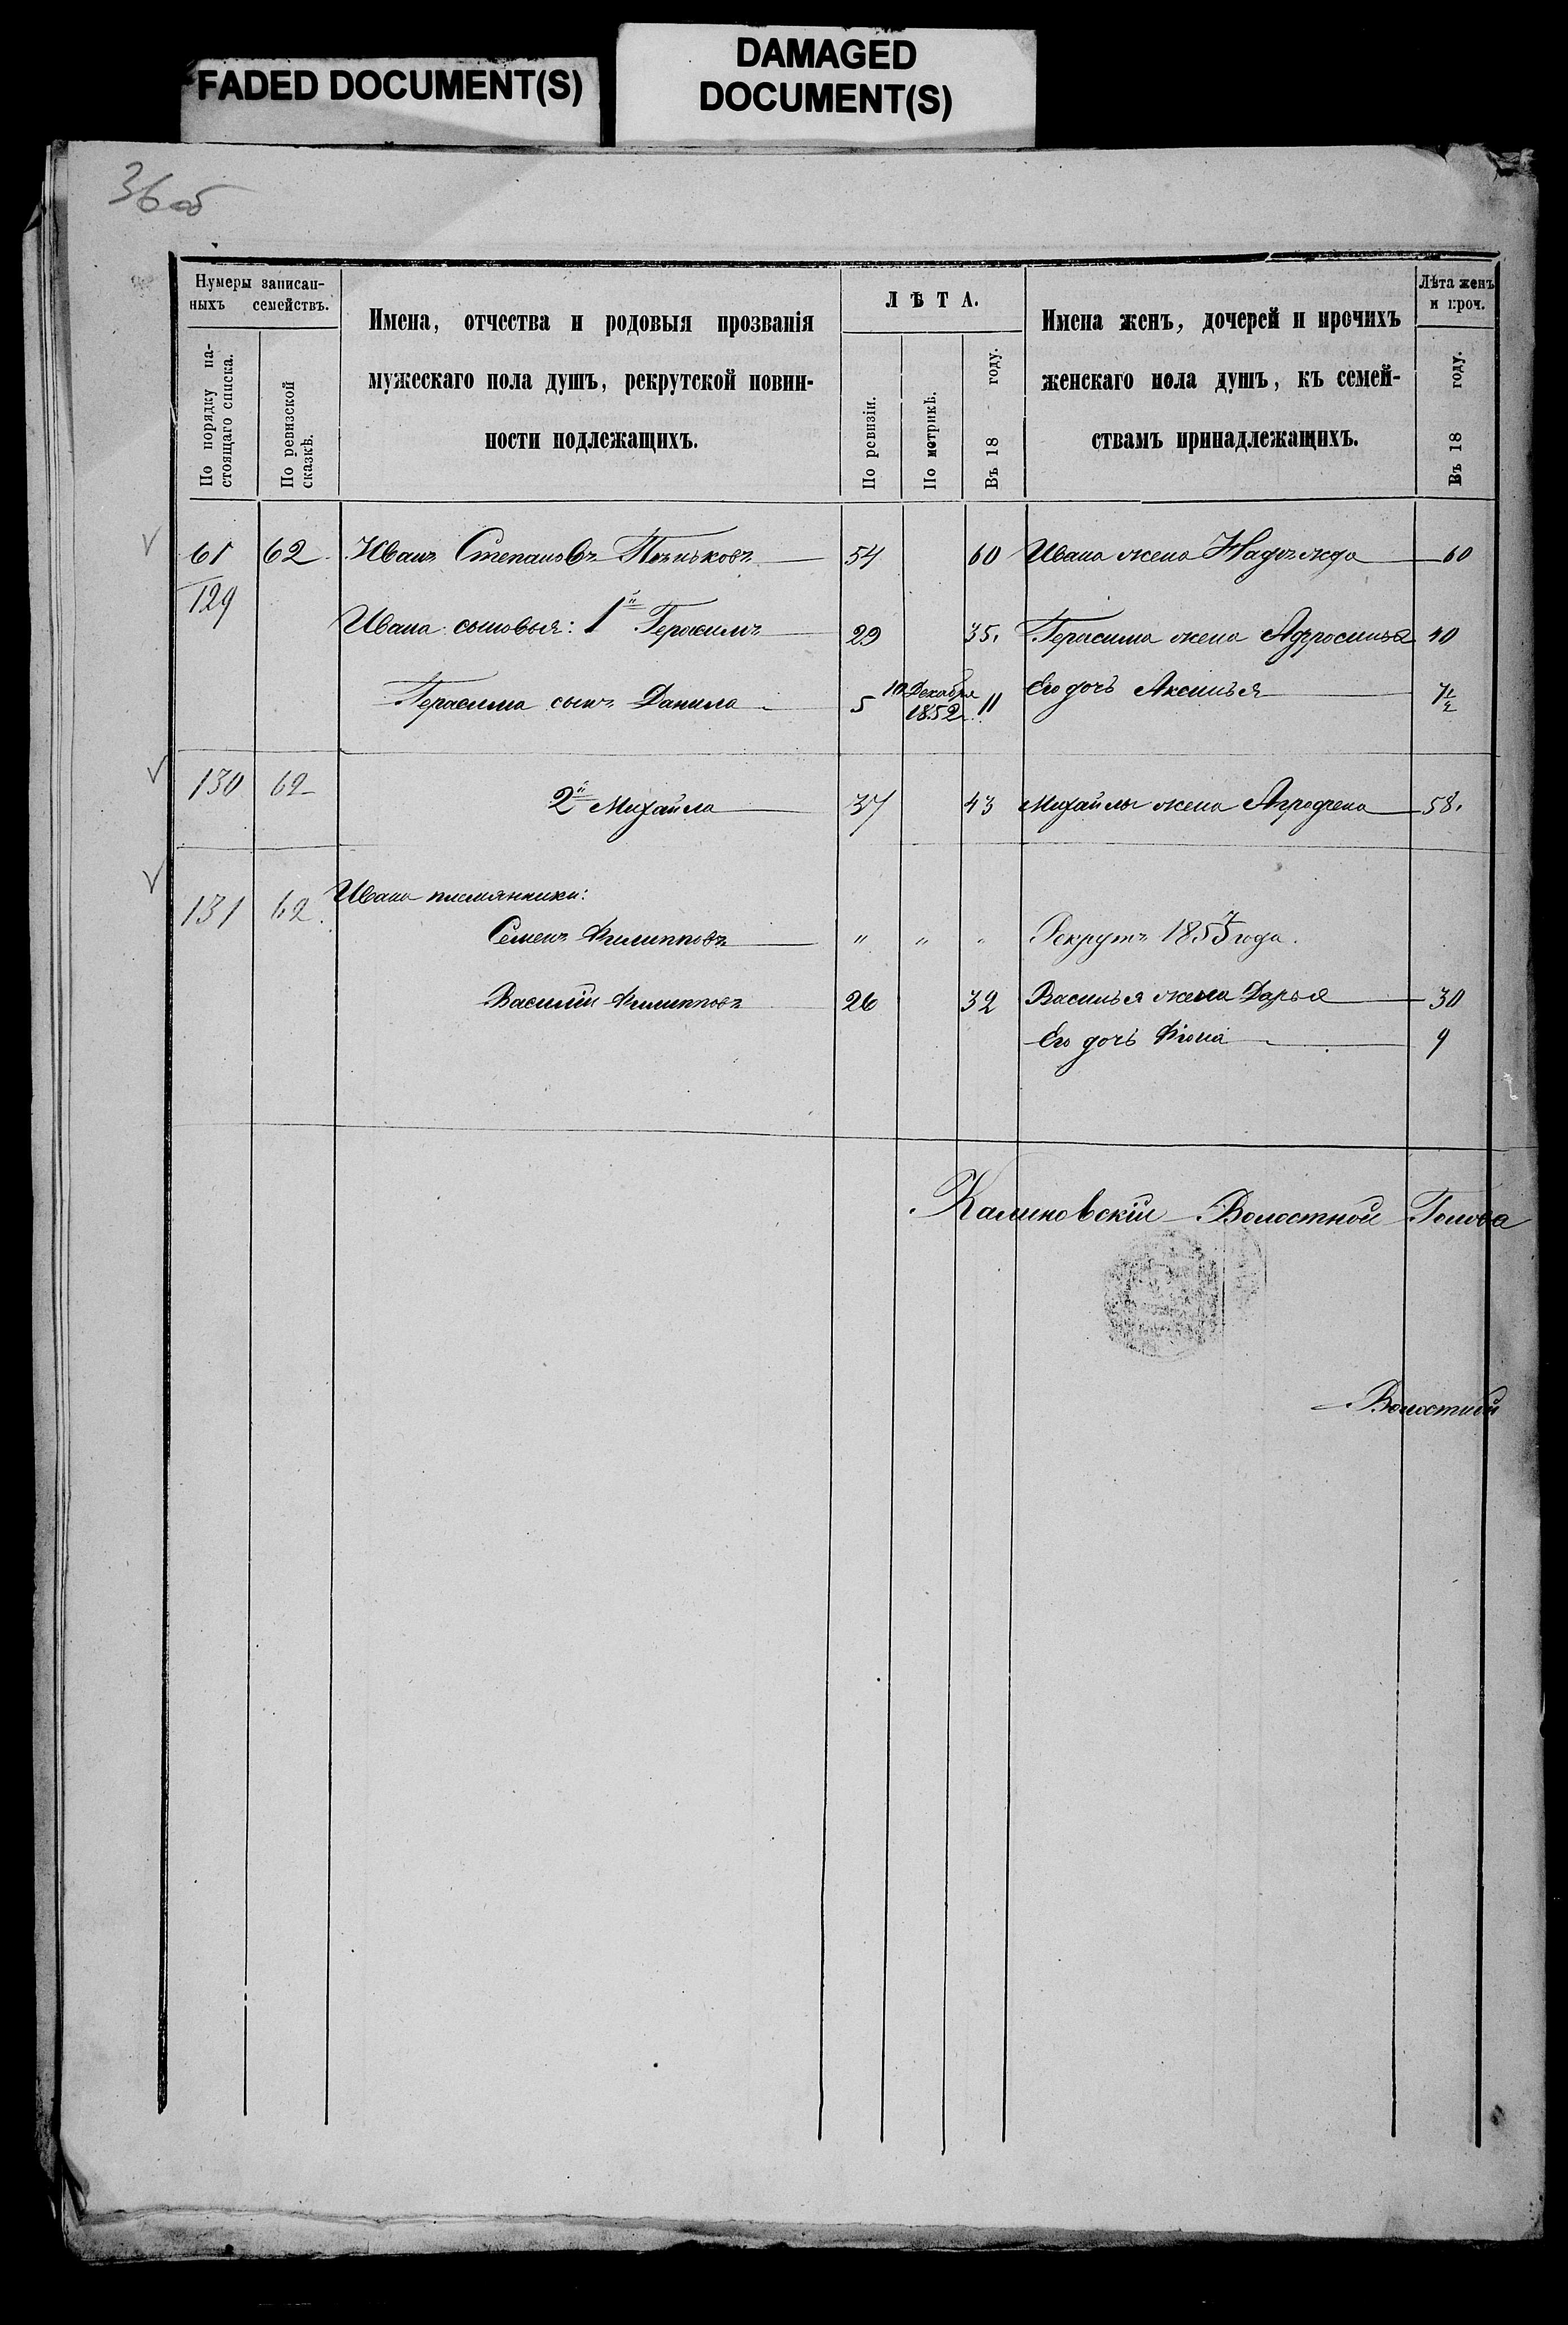 FADED DOCUMENT(S)
DAMAGED
DOCUMENT(S)
36 об
Нумеры записан-
ныхъ семействъ.
По порядку на-
стоящаго списка.
По ревизской
сказкѣ.
Имена, отчества и родовыя прозванія
мужескаго пола душъ, рекрутской повин-
ности подлежащихъ.
ЛѢТА.
По ревизіи.
По метрикѣ.
Въ 18 году.
Имена женъ, дочерей и прочихъ
женскаго пола душъ, къ семей-
ствамъ принадлежащихъ.
Лѣта женъ
и проч.
Въ 18 году.
61 62 Иванъ Степановъ 54 60 Ивана жена Надежда 60
129
Ивана сыновья: 1й Герасимъ 29 35. Герасима жена Афросинья 40
Герасима сынъ Данила 5 10 Декабря 1852 11 Его дочь Аксинья 7½
130 62 2й Михайла 37 43 Михайлы жена Агрофена 58.
131 62 Ивана племянники:
Семенъ Филипповъ " " " Рекрутъ года.
Василій Филипповъ 26 32 Василья жена Дарья 30
Его дочь 9
Калиновскій Волостной Голова
Волостной